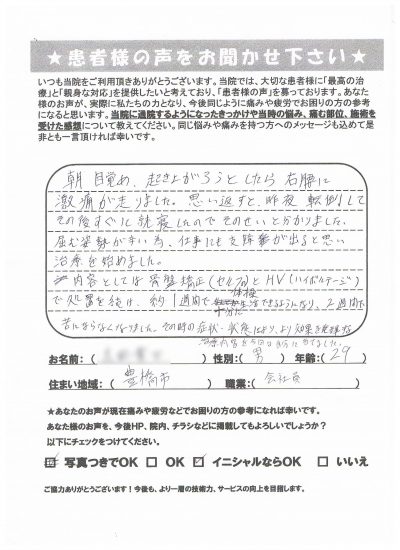 ★患者様の声をお聞かせ下さい★
いつも当院をご利用頂きありがとうございます。当院では、大切な患者様に「最高の治
療」と「親身な対応」を提供したいと考えており、「患者様の声」を募っております。あなた
様のお声が、実際に私たちの力となり、今後同じように痛みや疲労でお困りの方の参考
になると思います。当院に通院するようになったきっかけや当時の悩み、痛む部位、施術を
受けた感想について教えてください。同じ悩みや痛みを持つ方へのメッセージも込めて是
非とも一言頂ければ幸いです。
朝 目覚め、起き上がろうとしたら 右腰に
激痛が走りました。思い返すと、昨夜 転倒して
その後すぐに就寝したのでそのせいと分かりました。
屈む姿勢が多い為、仕事にも支障が出ると思い
治療を始めました。
内容としては 骨盤矯正(セルフ)と HV(ハイボルテージ)
で処置を続け、約1週間で
できるようになり、2週間で
苦にならなくなりました。その時の症状・状態により、より効果を
お名前:( )性別:( 男 )年齢:( 29 )
住まい地域:( 豊橋市 )職業:( 会社員 )
★あなたのお声が現在痛みや疲労などでお困りの方の参考になれば幸いです。
あなた様のお声を、今後HP、院内、チラシなどに掲載してもよろしいでしょうか?
以下にチェックをつけてください。
☑ 写真つきでOK □ OK ☑ イニシャルならOK □ いいえ
ご協力ありがとうございます!今後も、より一層の技術力、サービスの向上を目指します。